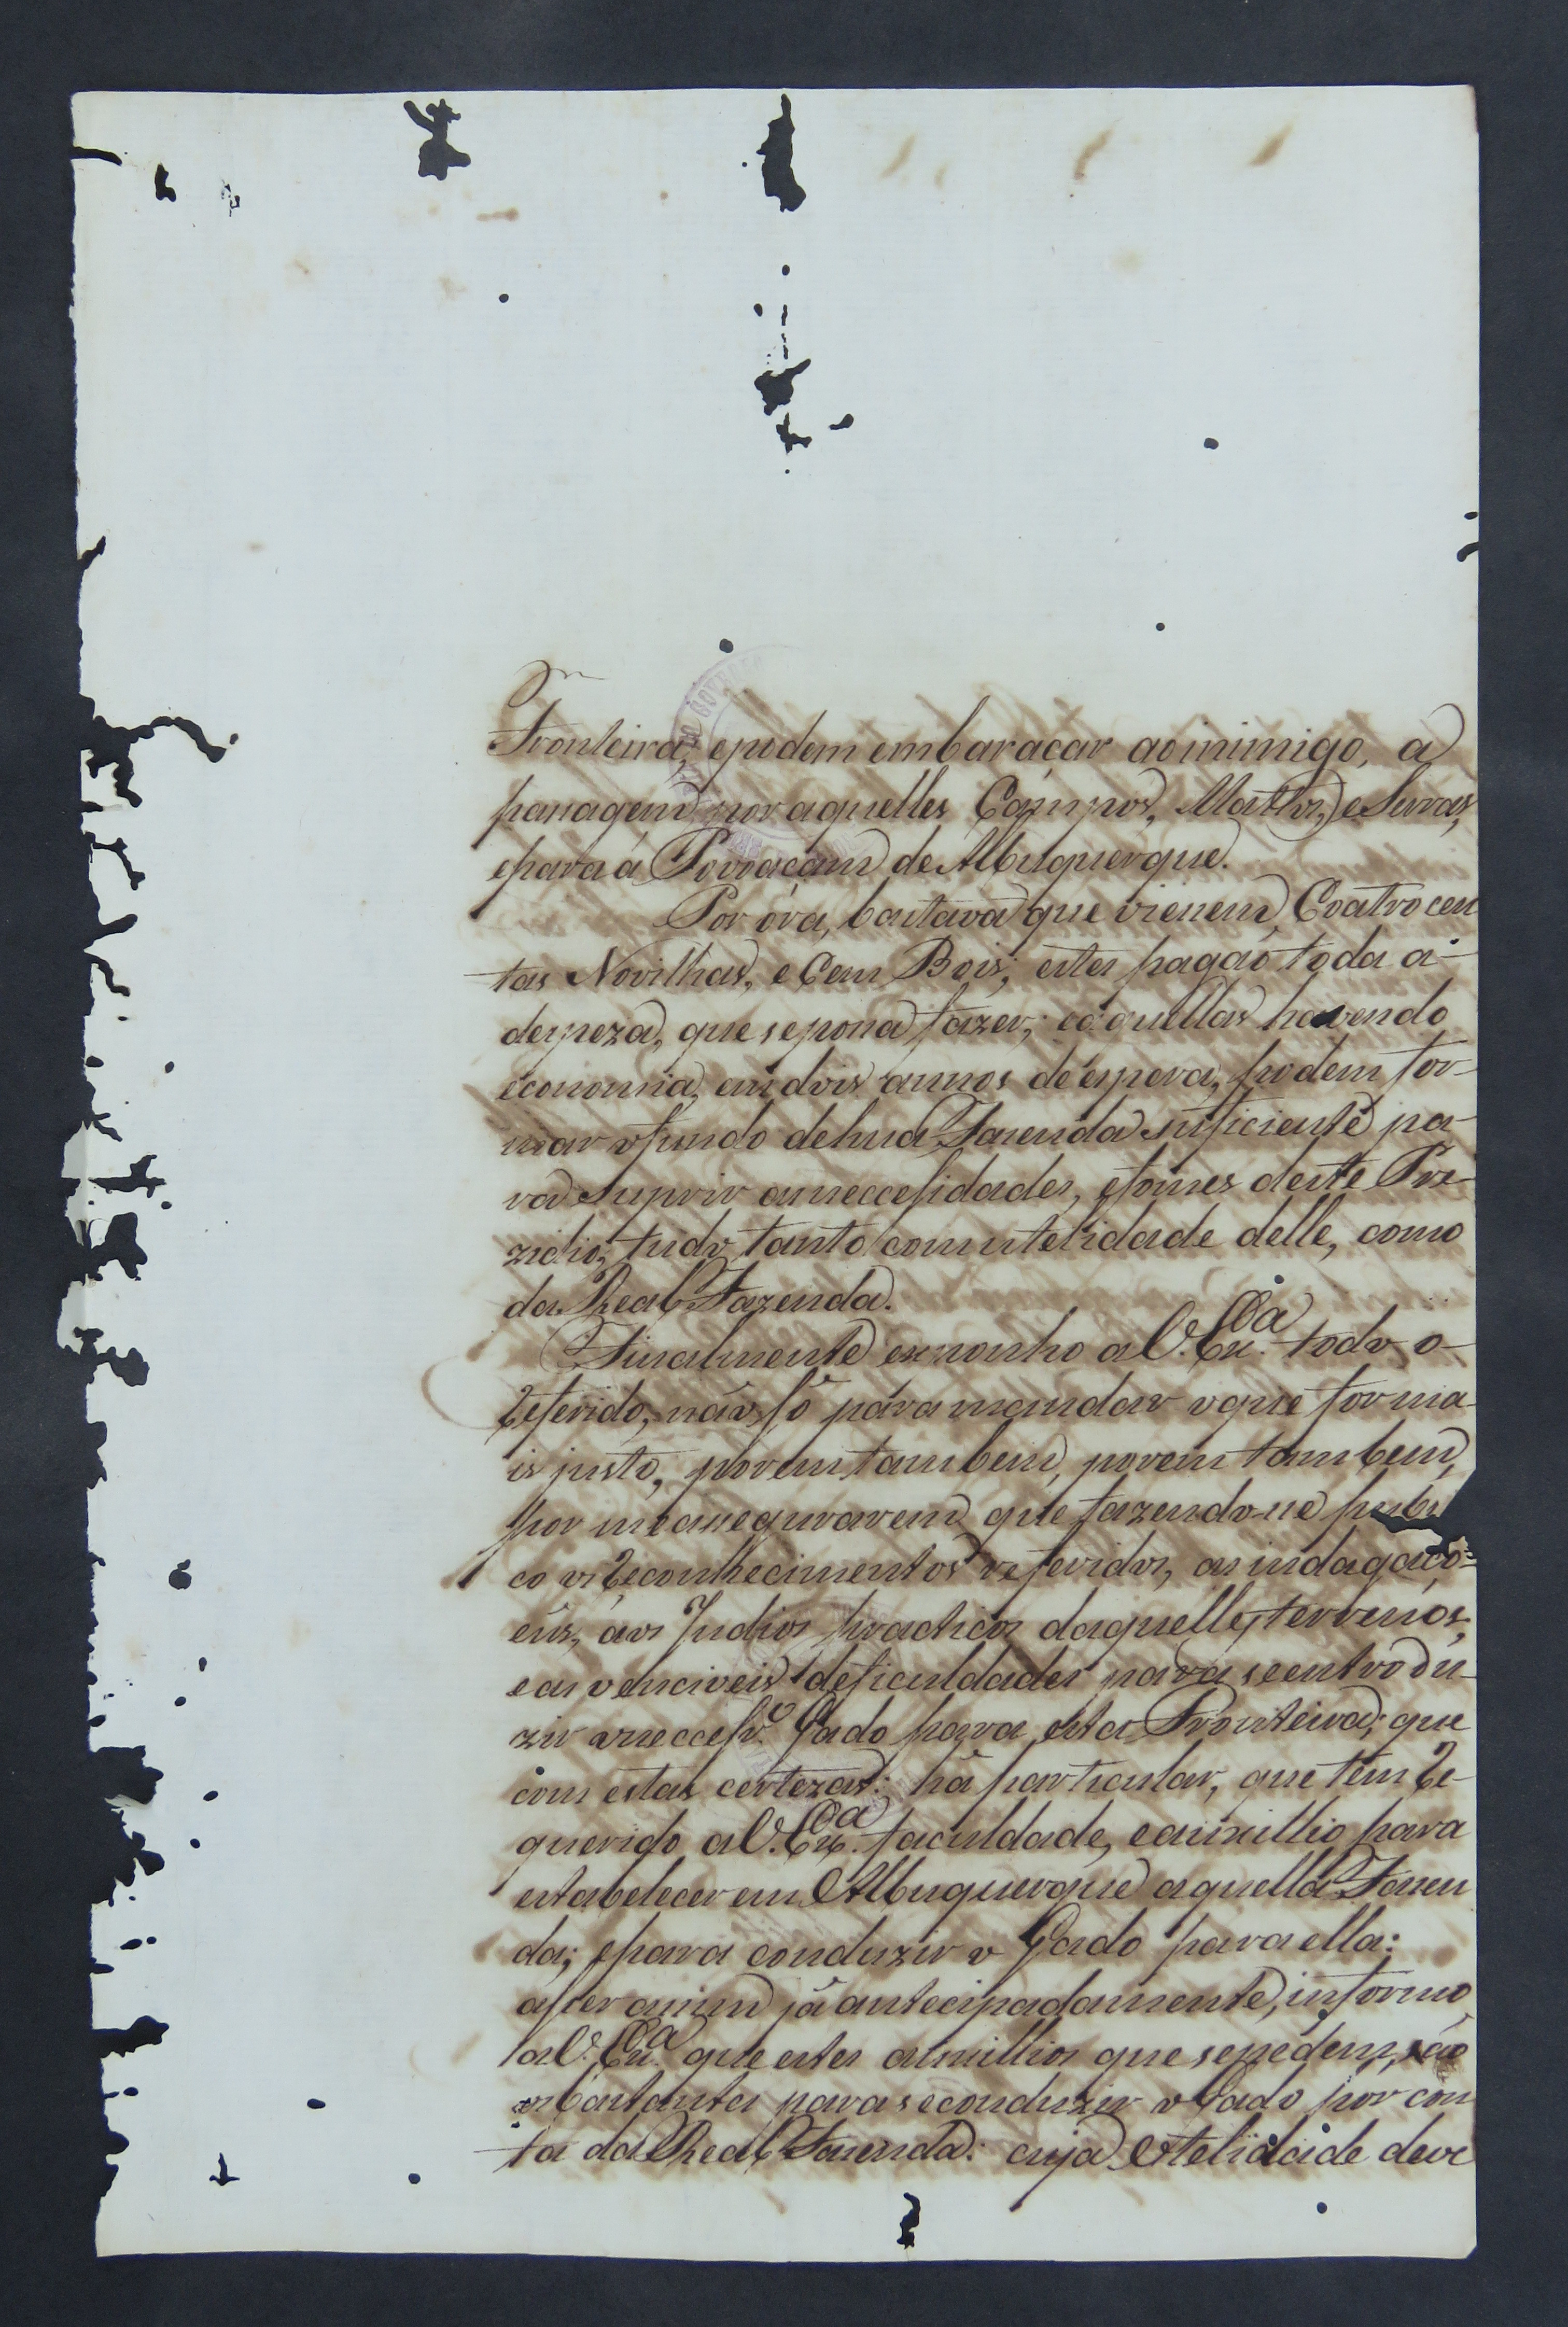 Fronteira, epodem embaraçar aoinimigo, a
passagem por aquelles Campos, Mattos, e Serras,
epara á Povoaçam de Albuquerque.
Por óra, bastava que viessem, Coatrocen
tas Novilhas, e Cem Bois; estes pagaó toda a-
despeza, que sepossa fazer; eaquellas havendo
economia, em dois annos de espera, podem for-
mar ofundo dehua Fazenda suficiente pa-
ra suprir asneccesidades, efomes deste Pre-
zidio; tudo tanto comutelidade delle, como
da Real Fazenda.
Finalmente exponho aV. Exa. todo o-
referido, não só para mandar oque for ma-
is justo, porem tambem, porem tambem,
por meassegurarem que fazendo-se publi
co os reconhecimentos referidos, as indagaço-
ens, aos Indios practicos daquelles terrenos,
eas venciveis deficuldades para seentrodu-
zir oneccesro. Gado para esta Fronteira; que
com estas certezas: há particular, que tem re-
querido aV. Exa. faculdade, eauxillio para
estabelecer em Albuquerque aquella Fazen
da; epara conduzir o Gado para ella:
aser assim já antecipadamente, informo
aV. Exa. que estes auxillios que sepedem, são
os bastantes para seconduzir o Gado por con
ta da Real Fazenda: cuja Utelidade deve